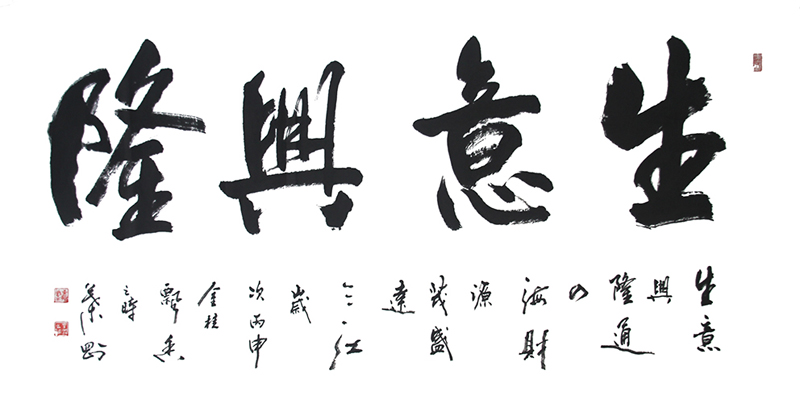 生意興隆
生意
興
隆通
四
海財
源
茂盛
達
三江
歲
次丙申
金桂
飄香
之時